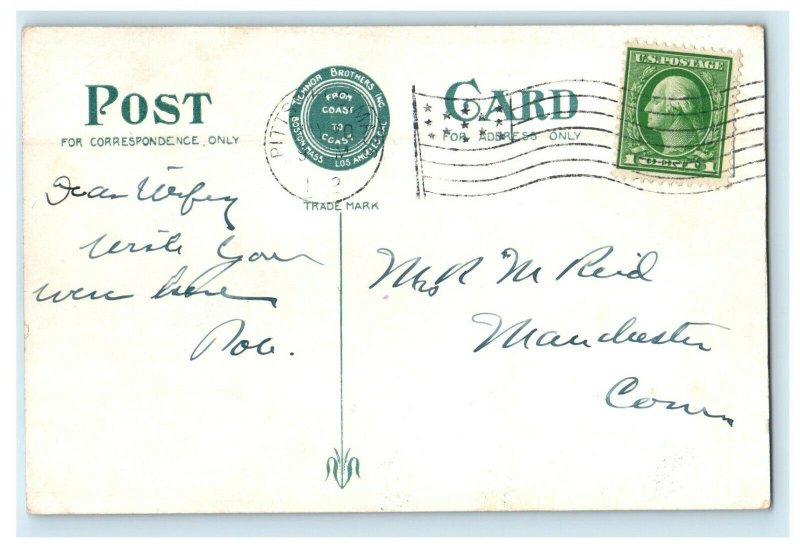 POST CARD
FOR CORRESPONDENCE ONLY
FOR ADDRESS ONLY
TICHNOR BROTHERS INC.
BOSTON MASS. LOS ANGELES CAL.
FROM
COAST
TO
COAST
TRADE MARK
PITTS
U.S. POSTAGE
1 CENT 1
Dear Wifey
Wish you
were here
Rob.
Mrs R M Reid
Manchester
Conn